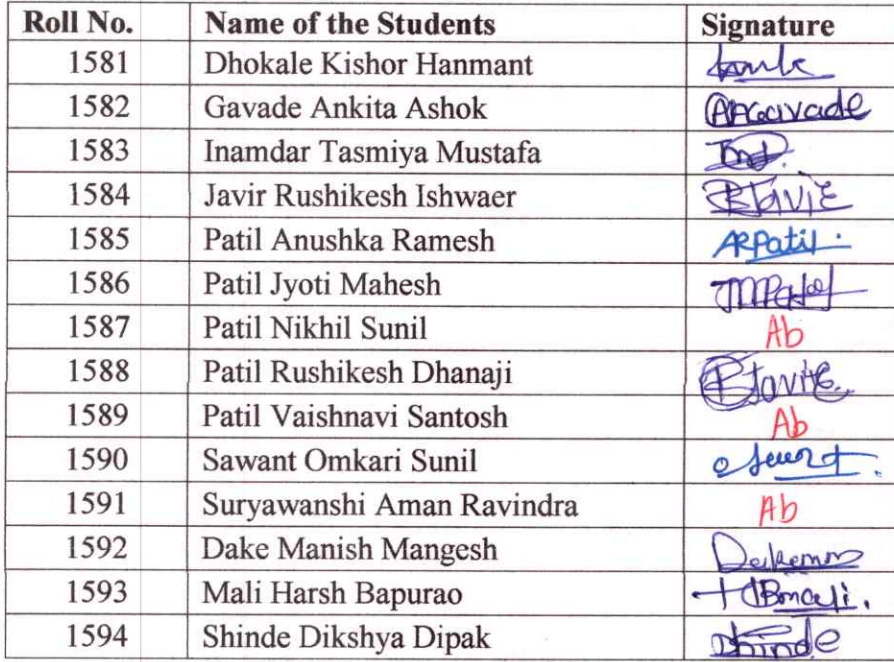 Roll No. Name of the Students Signature
1581 Dhokale Kishor Hanmant
1582 Gavade Ankita Ashok AAGavade
1583 Inamdar Tasmiya Mustafa
1584 Javir Rushikesh Ishwaer
1585 Patil Anushka Ramesh ARPatil.
1586 Patil Jyoti Mahesh
1587 Patil Nikhil Sunil Ab
1588 Patil Rushikesh Dhanaji
1589 Patil Vaishnavi Santosh Ab
1590 Sawant Omkari Sunil
1591 Suryawanshi Aman Ravindra Ab
1592 Dake Manish Mangesh
1593 Mali Harsh Bapurao
1594 Shinde Dikshya Dipak Shinde